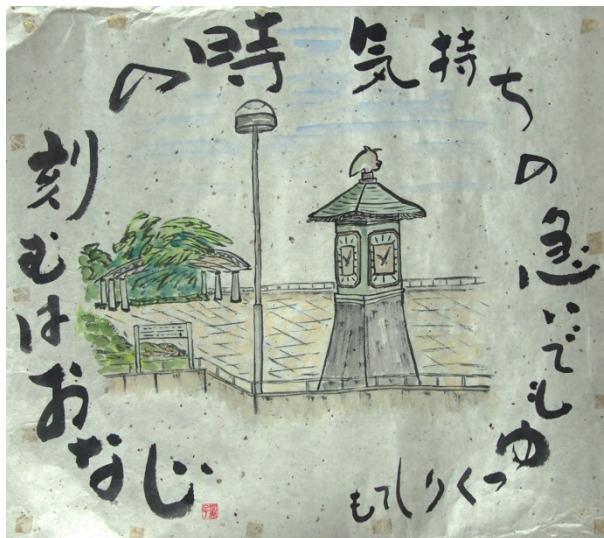 気持ちの急いでもゆっくりしても
時の刻むはおなじ